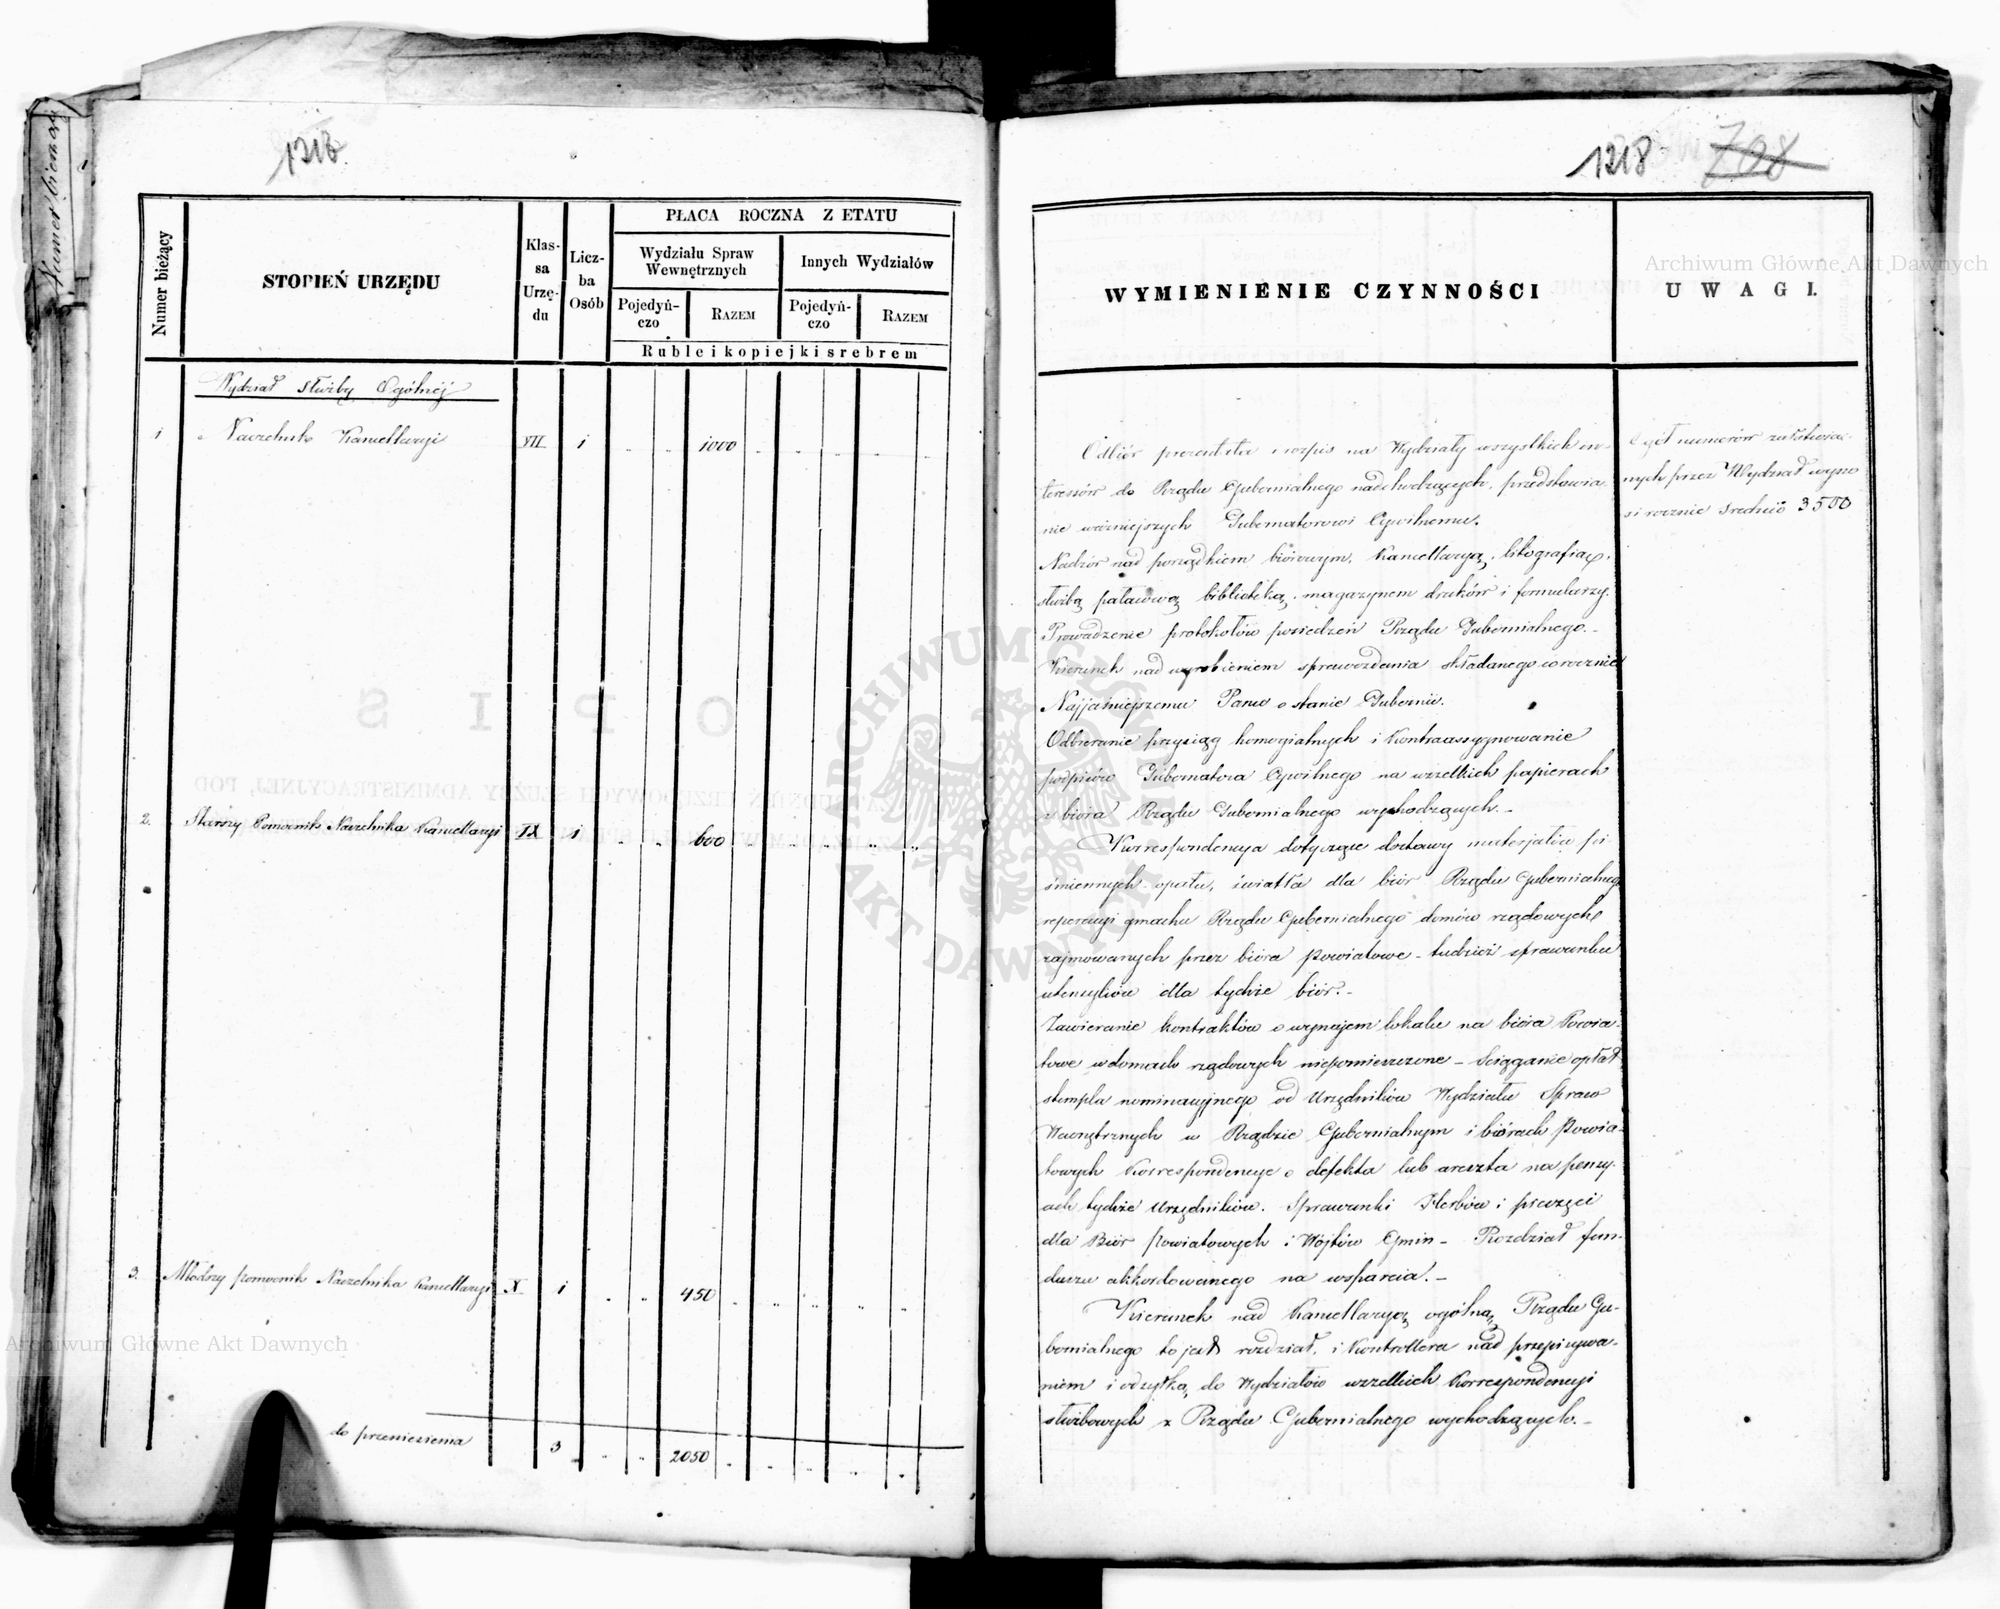 1218
PŁACA ROCZNA Z ETATU
Numer bieżący
STOPIEŃ URZĘDU
Klas-
sa
Urzę-
du
Licz-
ba
Osób
Wydziału Spraw
Wewnętrznych
Innych Wydziałów
Pojedyń-
czo
RAZEM
Pojedyń-
czo
RAZEM
Ruble i kopiejki srebrem
Wydział służby Ogólnéj
1 Naczelnik Kancellaryi VII 1 1000
2. Starszy Pomocnik Naczelnika Kancellaryi IX 1 600
3. Młodszy pomocnik Naczelnika Kancellaryi X 1 450
do przeniesienia 3 2050
1218 708
WYMIENIENIE CZYNNOŚCI
UWAGI.
Odbiór prezentata i rozpis na Wydziały wszystkich in-
teressów do Rządu Gubernialnego nadchodzących, przedstawia-
nie ważniejszych Gubernatorowi Cywilnemu.
Nadzór nad porządkiem biórowym, Kancellaryą, litografią,
służbą pałacową biblioteką, magazynem druków i formularzy.
Prowadzenie protokołów posiedzeń Rządu Gubernialnego.-
Kierunek nad wyrobieniem sprawozdania składanego corocznie
Najjaśniejszemu Panu o stanie Gubernii.
Odbieranie przysiąg homagialnych i Kontrassygnowanie
podpisów Gubernatora Cywilnego na wszelkich papierach
z bióra Rządu Gubernialnego wychodzących.-
Korrespondencya dotycząca dostawy materjałów pi-
śmiennych opału, światła dla biór Rządu Gubernialnego
reperacyi gmachu Rządu Gubernialnego domów rządowych
zajmowanych przez bióra powiatowe - tudzież sprawunku
utensyliów dla tychże biór.-
Zawieranie kontraktów o wynajem lokalu na bióra Powia-
towe w domach rządowych niepomieszczone - Ściąganie opłat
stempla nominacyjnego od Urzędników Wydziału Spraw
Wewnętrznych w Rządzie Gubernialnym i biórach Powia-
towych Korrespondencye o defekta lub areszta na pensy-
ach tychże Urzędników. Sprawunki Herbów i pieczęci
dla Biór Powiatowych i Wójtów Gmin - Rozdział fun-
duszu akkordowanego na wsparcia.-
Kierunek nad Kancellaryą ogólną Rządu Gu-
bernialnego to jest rozdział, i Kontrollera nad przepisywa-
niem i odsyłką do Wydziałów wszelkich Korrespondencyi
służbowych z Rządu Gubernialnego wychodzących.-
Ogół numerów załatwia-
nych przez Wydział wyno-
si rocznie średnio 3500
Archiwum Główne Akt Dawnych
ARCHIWUM GŁÓWNE
AKT DAWNYCH
Archiwum Główne Akt Dawnych